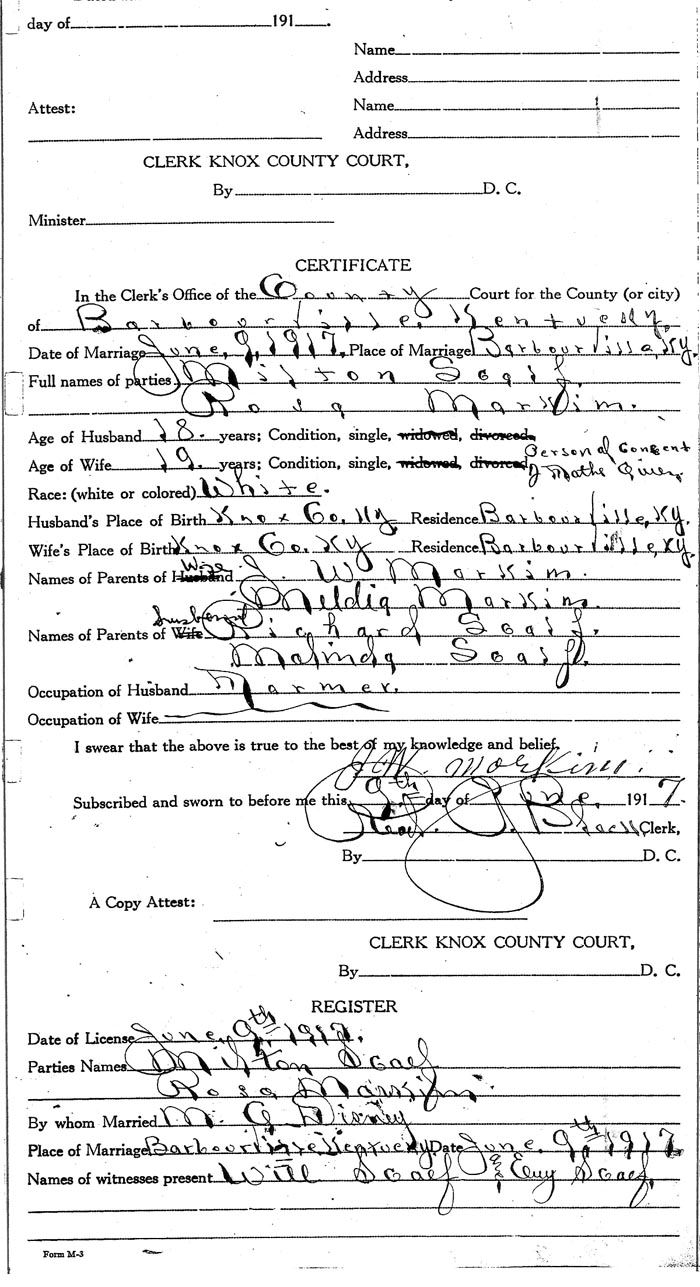 day of 191 .
Name
Address
Attest: Name
Address
CLERK KNOX COUNTY COURT,
By D. C.
Minister
CERTIFICATE
In the Clerk's Office of the County Court for the County (or city)
of Barbourville, Kentucky.
Date of Marriage June, 9, 1917. Place of Marriage Barbourville, Ky.
Full names of parties Milton Scalf.
Rosa Markim.
Age of Husband 18. years; Condition, single, widowed, divorced.
Age of Wife 19. years; Condition, single, widowed, divorced Personal Consent
Race: (white or colored) White.
Husband's Place of Birth Knox Co. Ky Residence Barbourville, Ky.
Wife's Place of Birth Knox Co. Ky Residence Barbourville, Ky.
Names of Parents of Husband Wife J. W. Markim
Markim.
Names of Parents of Wife husband Richard Scalf.
Malinda Scalf.
Occupation of Husband Farmer.
Occupation of Wife
I swear that the above is true to the best of my knowledge and belief,
J. W. Markim
Subscribed and sworn to before me this 9th day of June, 1917.
Clerk,
By D. C.
A Copy Attest:
CLERK KNOX COUNTY COURT,
By D. C.
REGISTER
Date of License June, 9th 1917.
Parties Names Milton Scalf
Rosa Markim
By whom Married M. G Disney
Place of Marriage Barbourville Kentucky Date June. 9th 1917.
Names of witnesses present Will Scalf & Scalf.
Form M-3